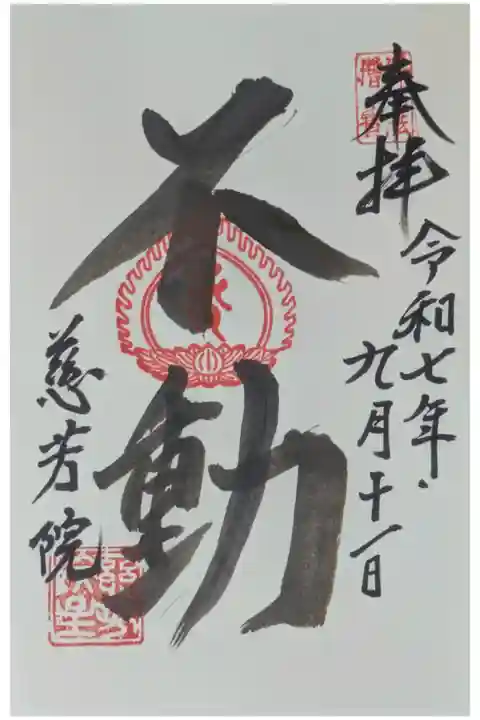 奉拝
令和七年
九月十一日
不動
慈芳院